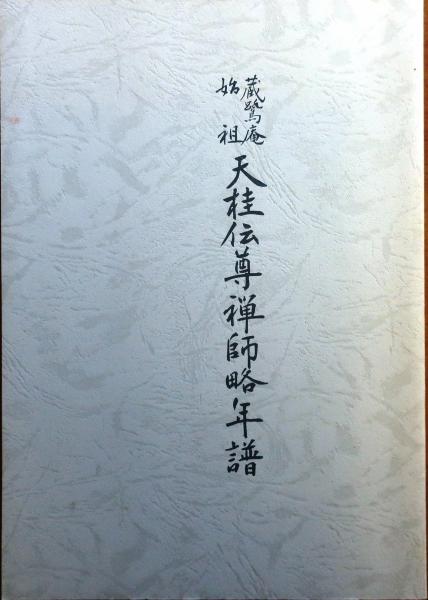 蔵鷺庵
始祖
天桂伝尊禅師略年譜